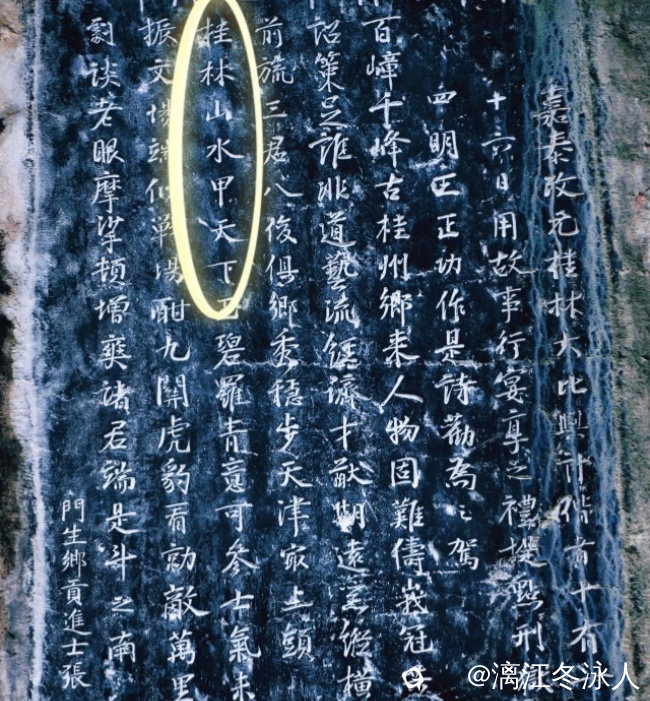 嘉泰改元桂林大比與計偕者十有
十六日用故事行宴享之禮提點刑
四明王正功作是詩勸為之駕
百嶂千峰古桂州鄉來人物固難儔峩冠
詔策足誰非道藝流經濟才猷期遠器縱橫
前旒三君八俊俱鄉秀穩步天津最上頭
桂林山水甲天下玉碧羅青意可參士氣未
振文場端似戰場酣九關虎豹看勍敵萬里
劇談老眼摩挲頓增爽諸君端是斗之南
門生鄉貢進士張
@漓江冬泳人